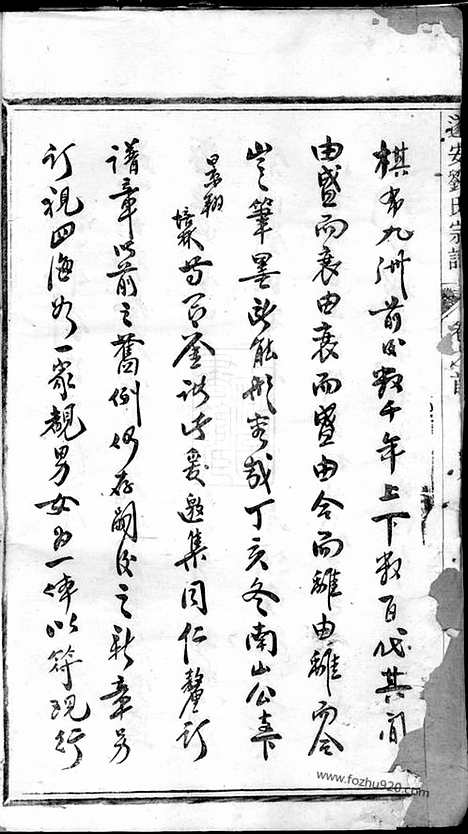 棋布九洲前後數千年上下數百代其間
由盛而衰由衰而盛由合而離由離而合
豈筆墨所能形容哉丁亥冬南山公壽卞
景翔
培 等 爰邀集同仁釐訂
譜章以前之舊例仍存嗣後之新章另
訂視四海如一家覩男女為一体以符現行
遂安劉氏宗譜
卷首
www.fozhu920.com